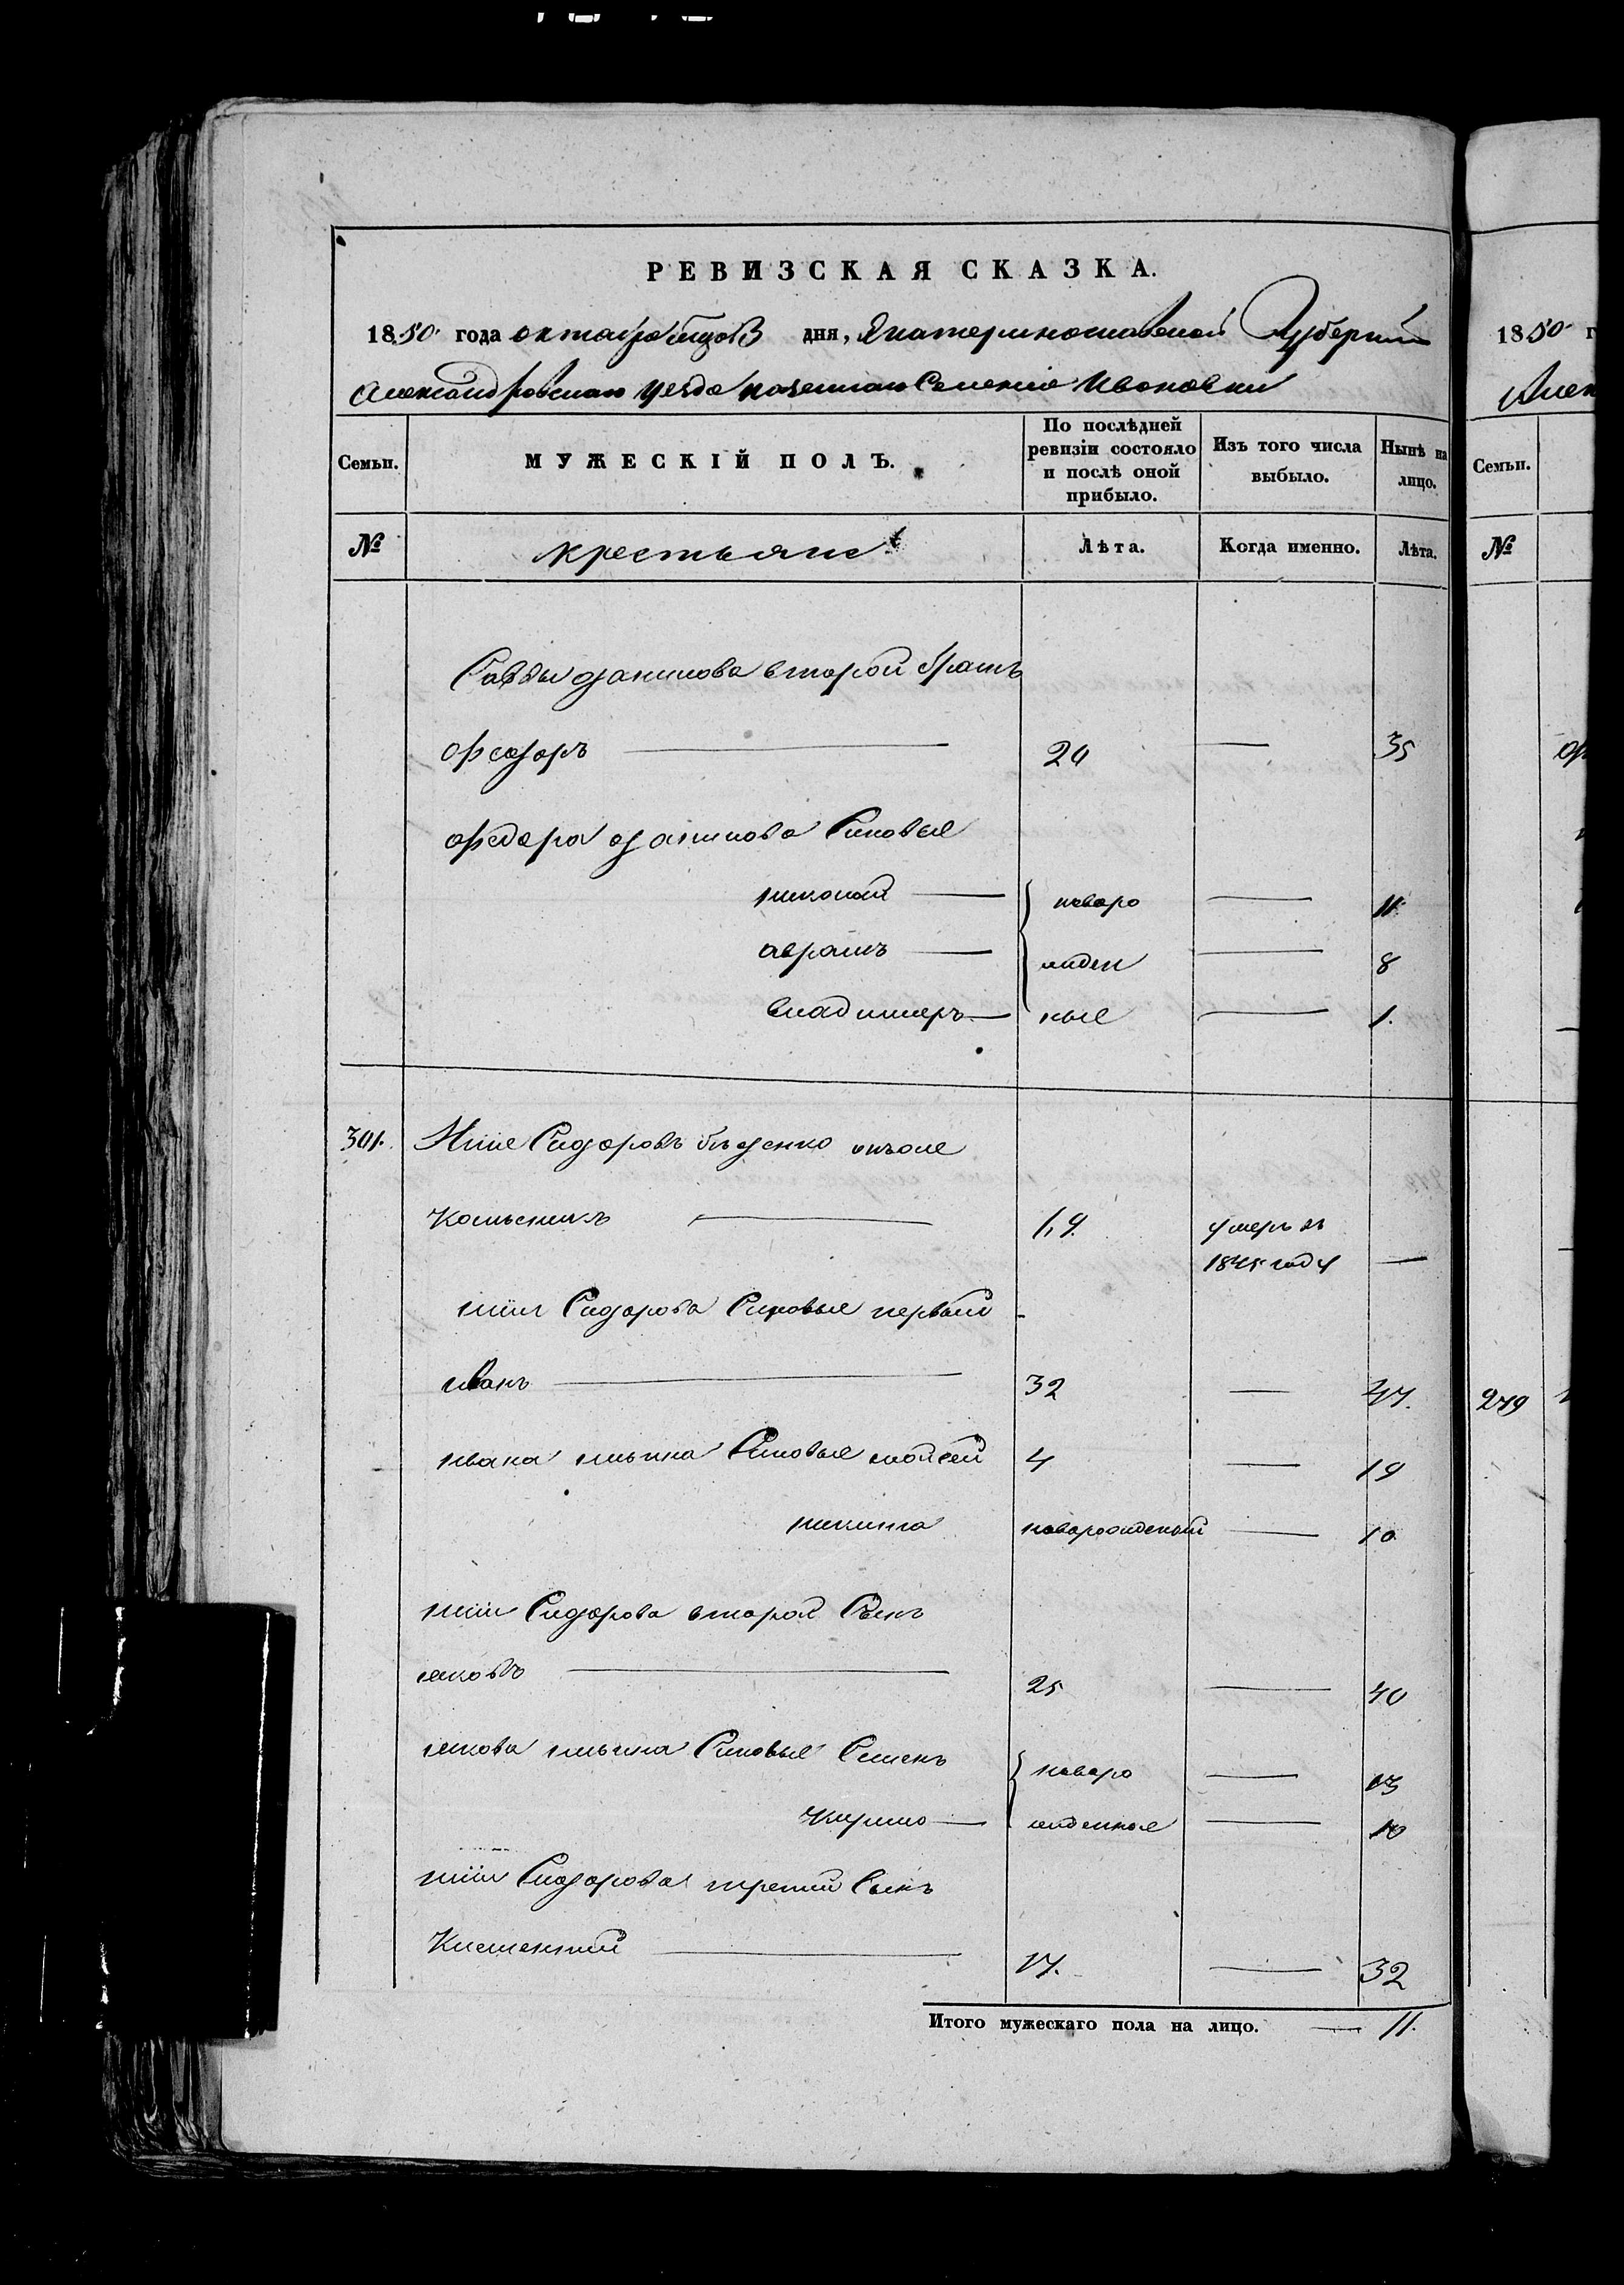 РЕВИЗСКАЯ СКАЗКА.
1850 года октября месяца дня, Екатеринославской Губернии
Александровскаго уезда казеннаго Селения Ивановки
Семьи. МУЖЕСКІЙ ПОЛЪ. По послѣдней ревизіи состояло и послѣ оной прибыло. Изъ того числа выбыло. Нынѣ на лицо.
№ крестьяне Лѣта. Когда именно. Лѣта.
Саввы данилова второй братъ
федоръ 20 — 35
федора данилова Синовые
николай — новоро — 11
аврамъ — жден — 8
владимеръ — ные — 1.
301. Илие Сидоровъ онъже
Колесникъ — 69 умеръ въ
1845 году —
илии Сидорова Синовые первый
иванъ — 32 — 47.
ивана ильина Синовые мойсей 4 — 19
никита новорожденый — 10
илии Сидорова второй Сынъ
яковъ — 25 — 40
якова ильина Синовые Семенъ новоро — 13
Кирило — жденные — 10
илии Сидорова третий Сынъ
Климентий — 17. — 32
Итого мужескаго пола на лицо. — 11.
1850 г
Алек
Семьи.
№
279